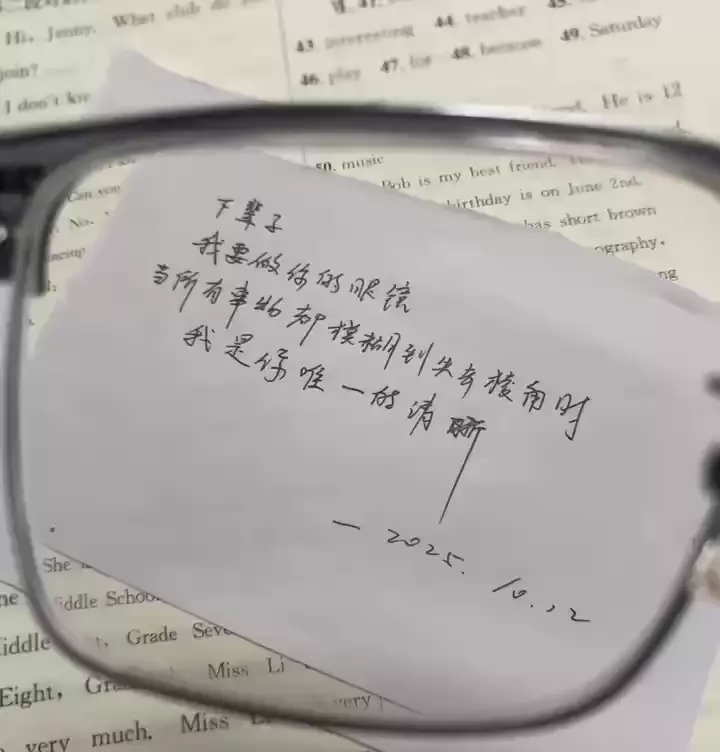 Hi, Jenny. What club do
join?
I don't
43. interesting 44. teacher 45.
46. play 47. for 48. because 49. Saturday
He is 12
50. music
Bob is my best friend.
birthday is on June 2nd.
has short brown
ography.
ng
Can you
No.
下辈子
我要做你的眼镜
当所有事物都模糊到失去棱角时
我是你唯一的清晰
— 2025. 10. 12
She
ddle School
iddle
Grade Seve
Eight, Gra
Miss Li
very
very much. Miss